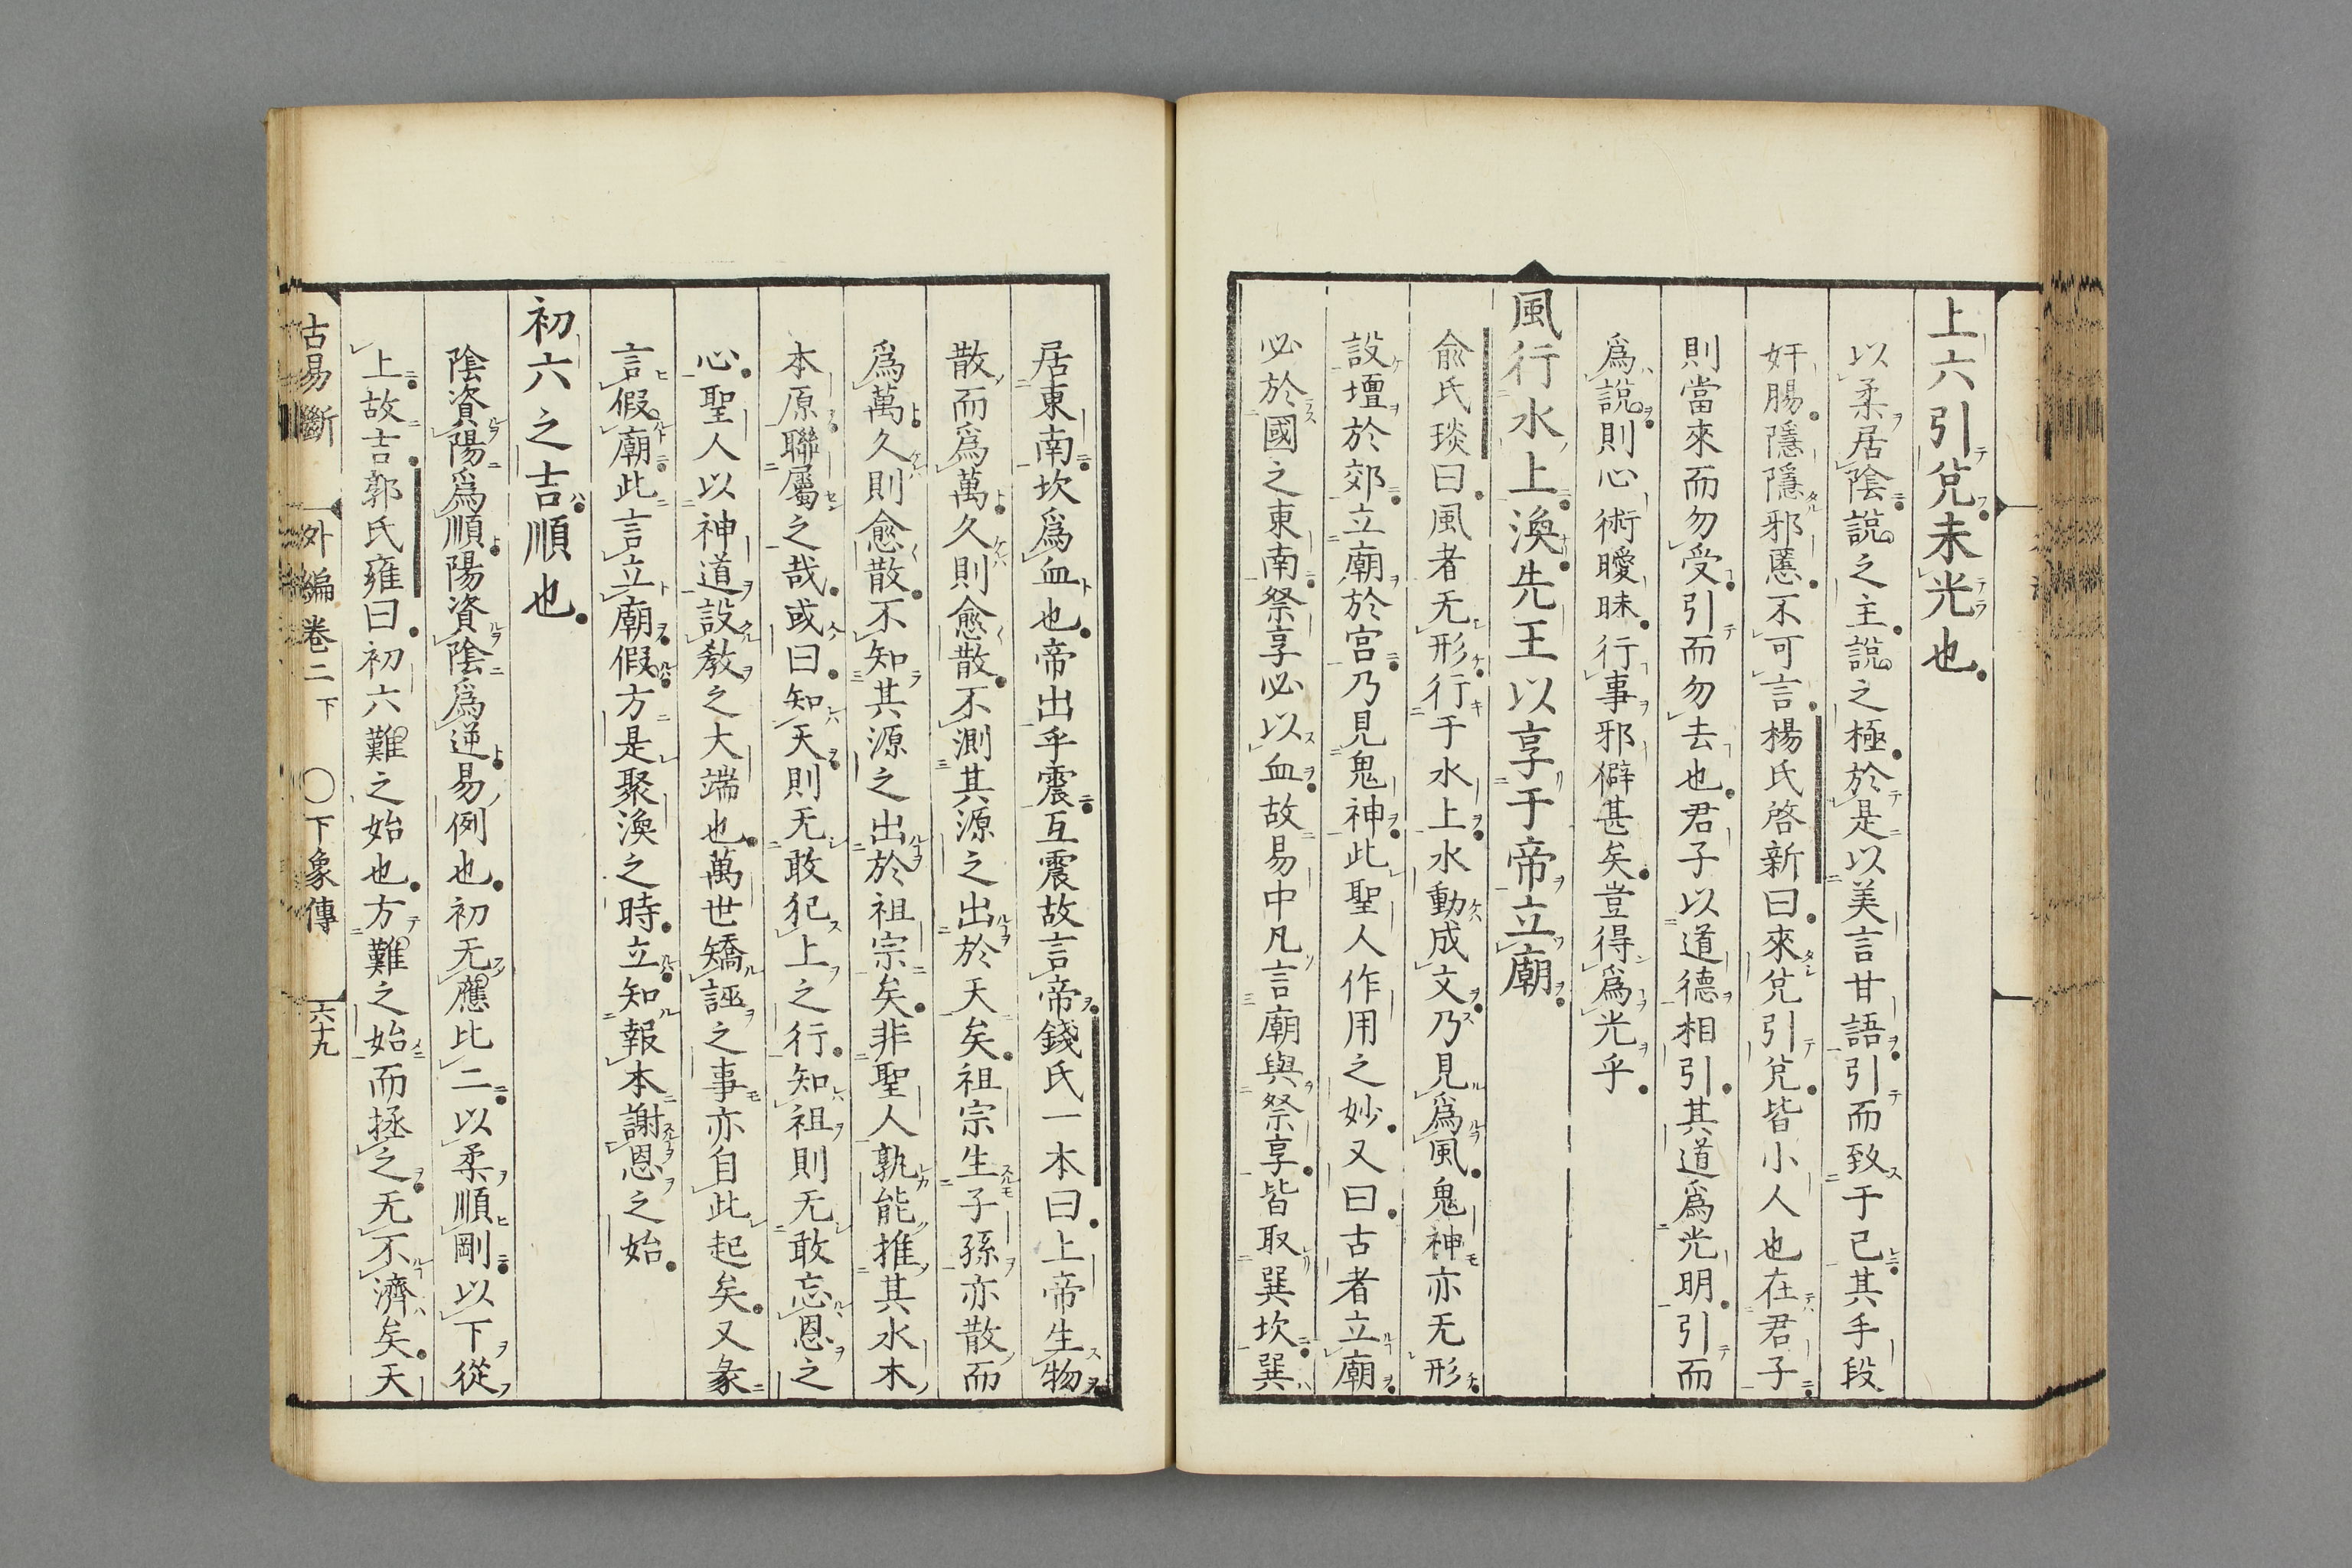 上六引兌未光也
以柔居陰說之主說之極於是以美言甘語引而致于己其手段
奸腸隱隱邪慝不可言楊氏啓新曰來兌引兌皆小人也在君子
則當來而勿受引而勿去也君子以道德相引其道爲光明引而
爲說則心術曖昧行事邪僻甚矣豈得爲光乎
風行水上渙先王以享于帝立廟
兪氏琰曰風者无形行于水上水動成文乃見爲風鬼神亦无形
設壇於郊立廟於宮乃見鬼神此聖人作用之妙又曰古者立廟
必於國之東南祭享必以血故易中凡言廟與祭享皆取巽坎巽
居東南坎爲血也帝出乎震互震故言帝錢氏一本曰上帝生物
散而爲萬久則愈散不測其源之出於天矣祖宗生子孫亦散而
爲萬久則愈散不知其源之出於祖宗矣非聖人孰能推其水木
本原聯屬之哉或曰知天則无敢犯上之行知祖則无敢忘恩之
心聖人以神道設教之大端也萬世矯誣之事亦自此起矣又彖
言假廟此言立廟假方是聚渙之時立知報本謝恩之始
初六之吉順也
陰資陽爲順陽資陰爲逆易例也初无應比二以柔順剛以下從
上故吉郭氏雍曰初六難之始也方難之始而拯之无不濟矣天
古易斷 外編卷二下 〇下象傳 六十九